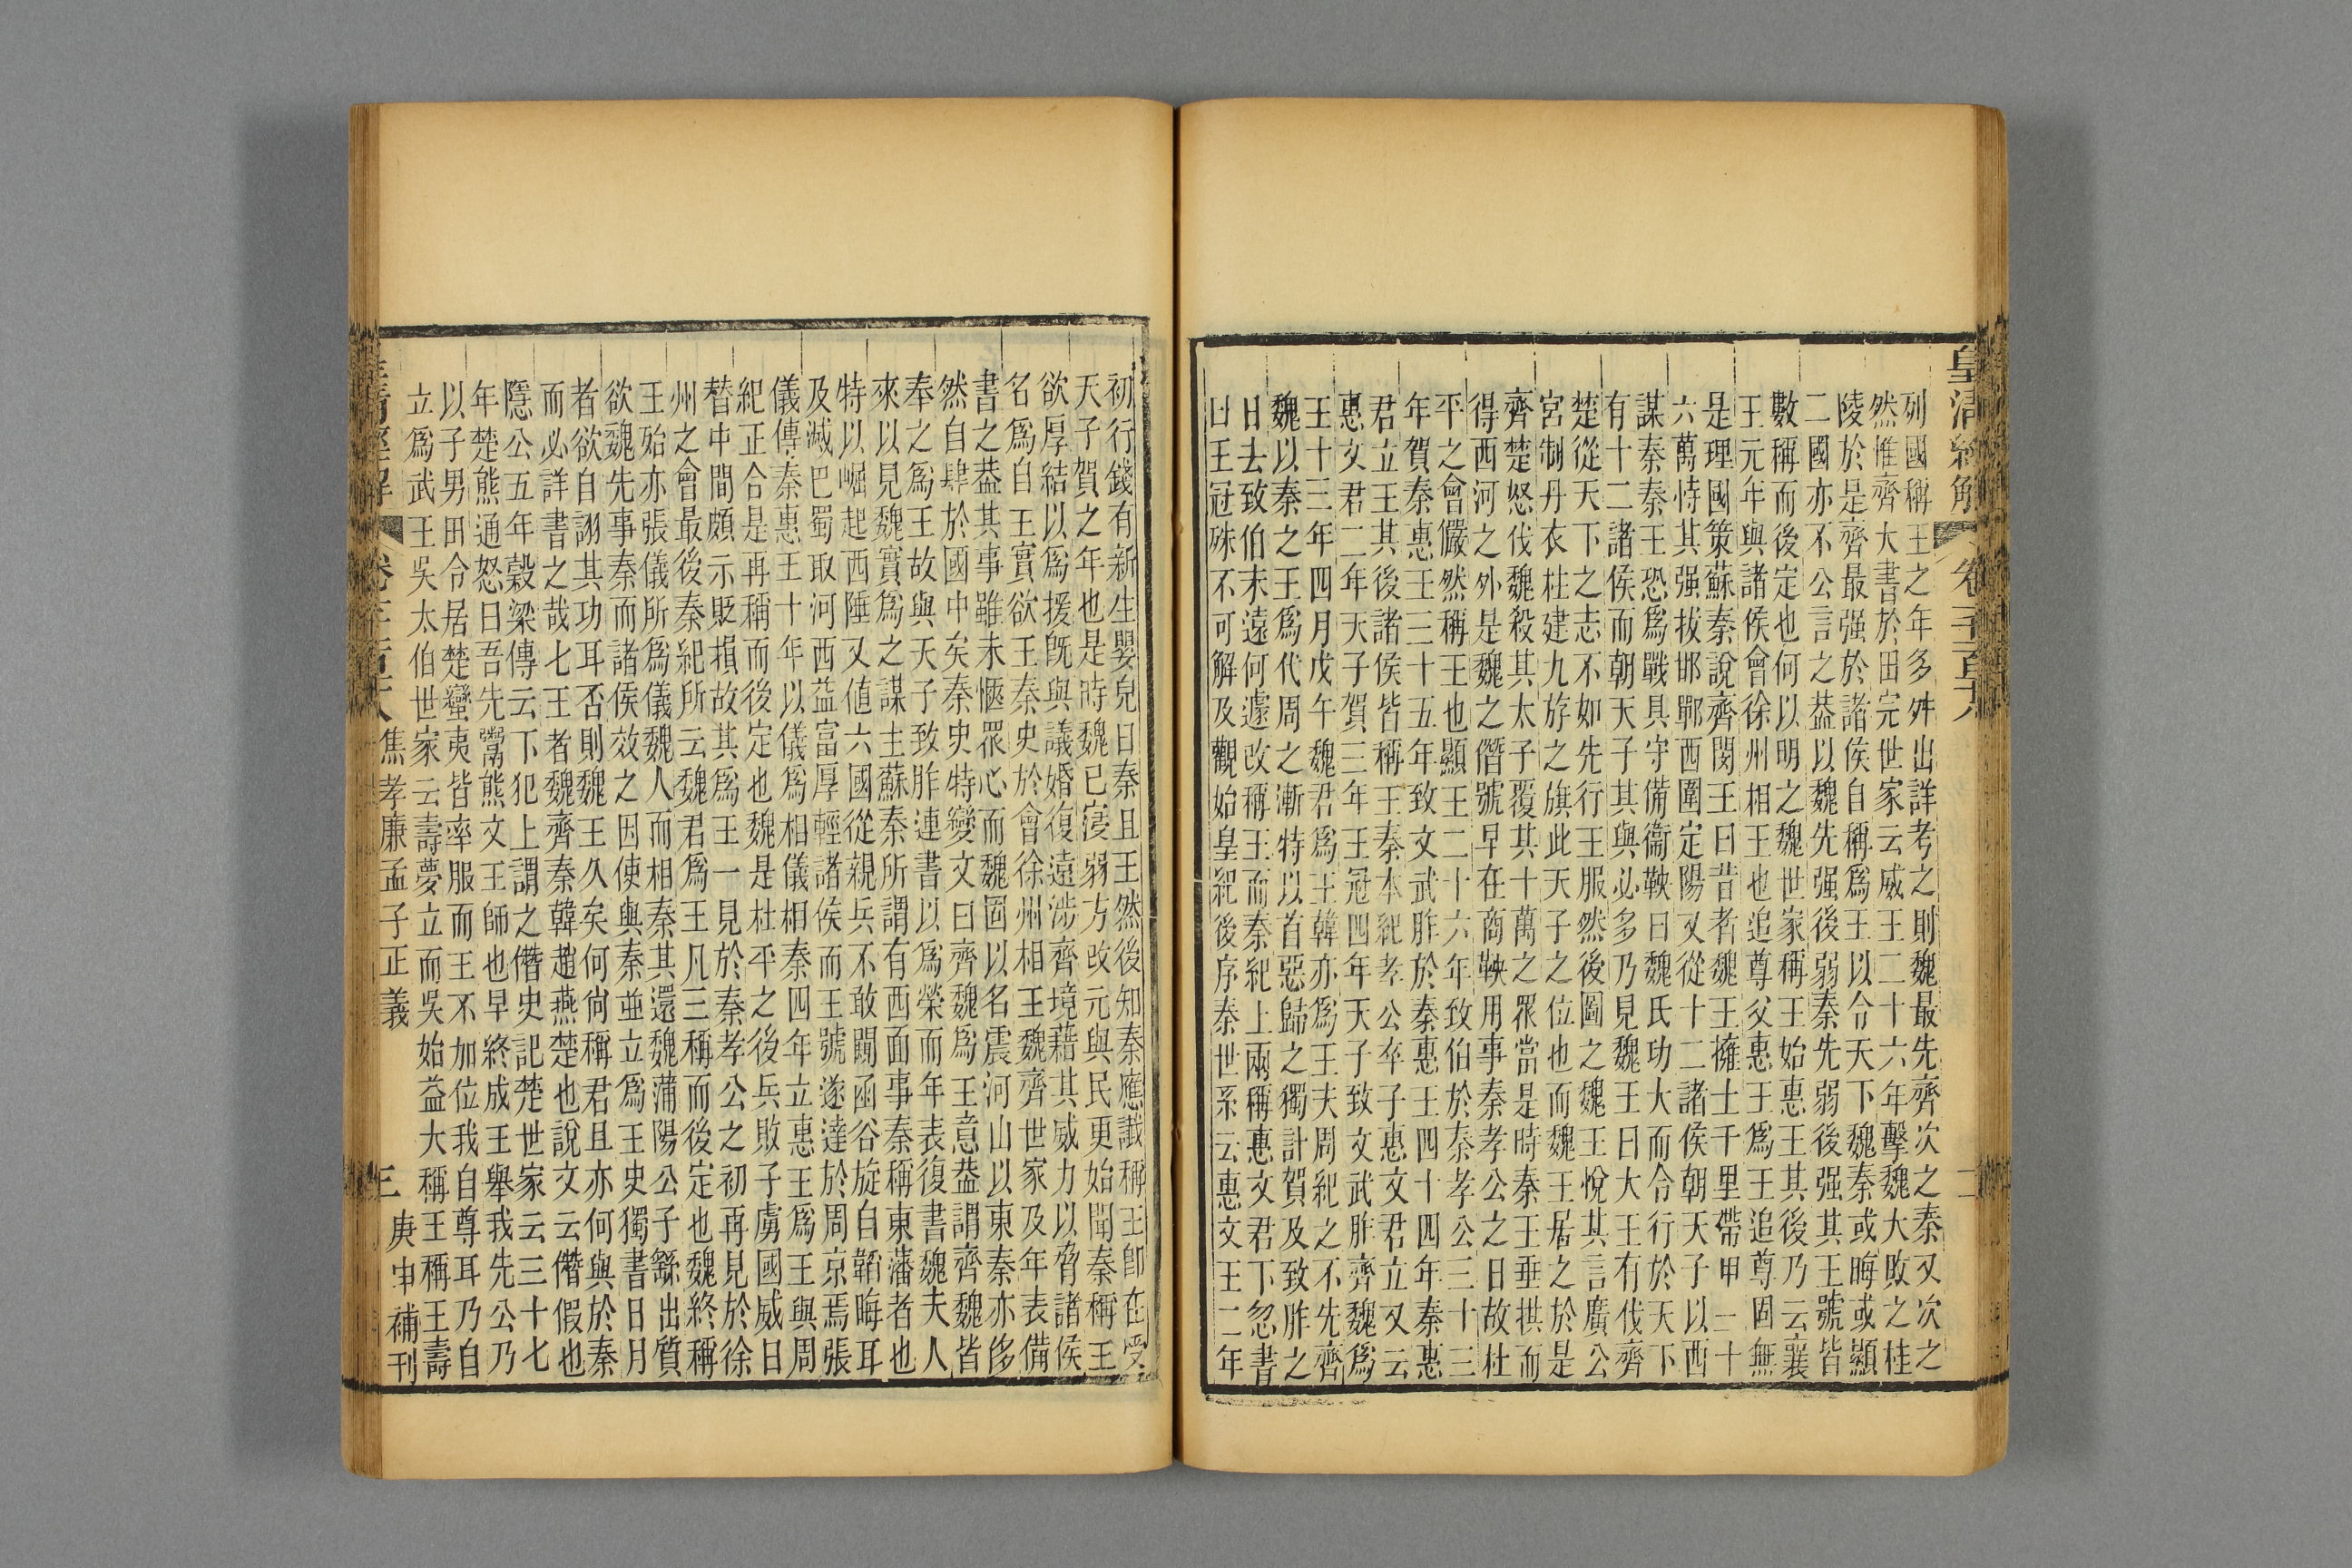 列國稱王之年多舛出詳考之則魏最先齊次之秦又次之
然惟齊大書於田完世家云威王二十六年擊魏大敗之桂
陵於是齊最强於諸侯自稱爲王以令天下魏秦或晦或顯
二國亦不公言之葢以魏先强後弱秦先弱後强其王號皆
數稱而後定也何以明之魏世家稱王始惠王其後乃云襄
王元年與諸侯會徐州相王也追尊父惠王爲王追尊固無
是理國策蘇秦說齊閔王曰昔者魏王擁士千里帶甲三十
六萬恃其强拔邯鄲西圍定陽又從十二諸侯朝天子以西
謀秦秦王恐爲戰具守備衞鞅曰魏氏功大而令行於天下
有十二諸侯而朝天子其與必多乃見魏王曰大王有伐齊
楚從天下之志不如先行王服然後圖之魏王悅其言廣公
宮制丹衣柱建九斿之旗此天子之位也而魏王居之於是
齊楚怒伐魏殺其太子覆其十萬之眾當是時秦王垂拱而
得西河之外是魏之僭號早在商鞅用事秦孝公之日故杜
平之會儼然稱王也顯王二十六年致伯於秦孝公三十三
年賀秦惠王三十五年致文武胙於秦惠王四十四年秦惠
君立王其後諸侯皆稱王秦本紀孝公卒子惠文君立又云
惠文君二年天子賀三年王冠四年天子致文武胙齊魏爲
王十三年四月戊午魏君爲王韓亦爲王夫周紀之不先齊
魏以秦之王爲代周之漸特以首惡歸之獨計賀及致胙之
日去致伯未遠何遽改稱王而秦紀上兩稱惠文君下忽書
曰王冠殊不可解及觀始皇紀後序秦世系云惠文王二年
皇清經解
卷千百十八
二
初行錢有新生嬰兒曰秦且王然後知秦應讖稱王卽在受
天子賀之年也是時魏已寖弱方改元與民更始聞秦稱王
欲厚結以爲援旣與議婚復遠涉齊境藉其威力以脅諸侯
名爲自王實欲王秦史於會徐州相王魏齊世家及年表備
書之葢其事雖未愜眾心而魏固以名震河山以東秦亦侈
然自肆於國中矣秦史特變文曰齊魏爲王意葢謂齊魏皆
奉之爲王故與天子致胙連書以爲榮而年表復書魏夫人
來以見魏實爲之謀主蘇秦所謂有西面事秦稱東藩者也
特以崛起西陲又値六國從親兵不敢闚函谷旋自韜晦耳
及滅巴蜀取河西益富厚輕諸侯而王號遂達於周京焉張
儀傳秦惠王十年以儀爲相儀相秦四年立惠王爲王與周
紀正合是再稱而後定也魏是杜平之後兵敗子虜國威日
替中間頗示貶損故其爲王一見於秦孝公之初再見於徐
州之會最後秦紀所云魏君爲王凡三稱而後定也魏終稱
王殆亦張儀所爲儀魏人而相秦其還魏蒲陽公子繇出質
欲魏先事秦而諸侯效之因使與秦並立爲王史獨書日月
者欲自詡其功耳否則魏王久矣何尙稱君且亦何與於秦
而必詳書之哉七王者魏齊秦韓趙燕楚也說文云僭假也
隱公五年穀梁傳云下犯上謂之僭史記楚世家云三十七
年楚熊通怒曰吾先鬻熊文王師也早終成王舉我先公乃
以子男田令居楚蠻夷皆率服而王不加位我自尊耳乃自
立爲武王吳太伯世家云壽夢立而吳始益大稱王稱王壽
皇清經解
焦孝廉孟子正義
三
庚申補刊